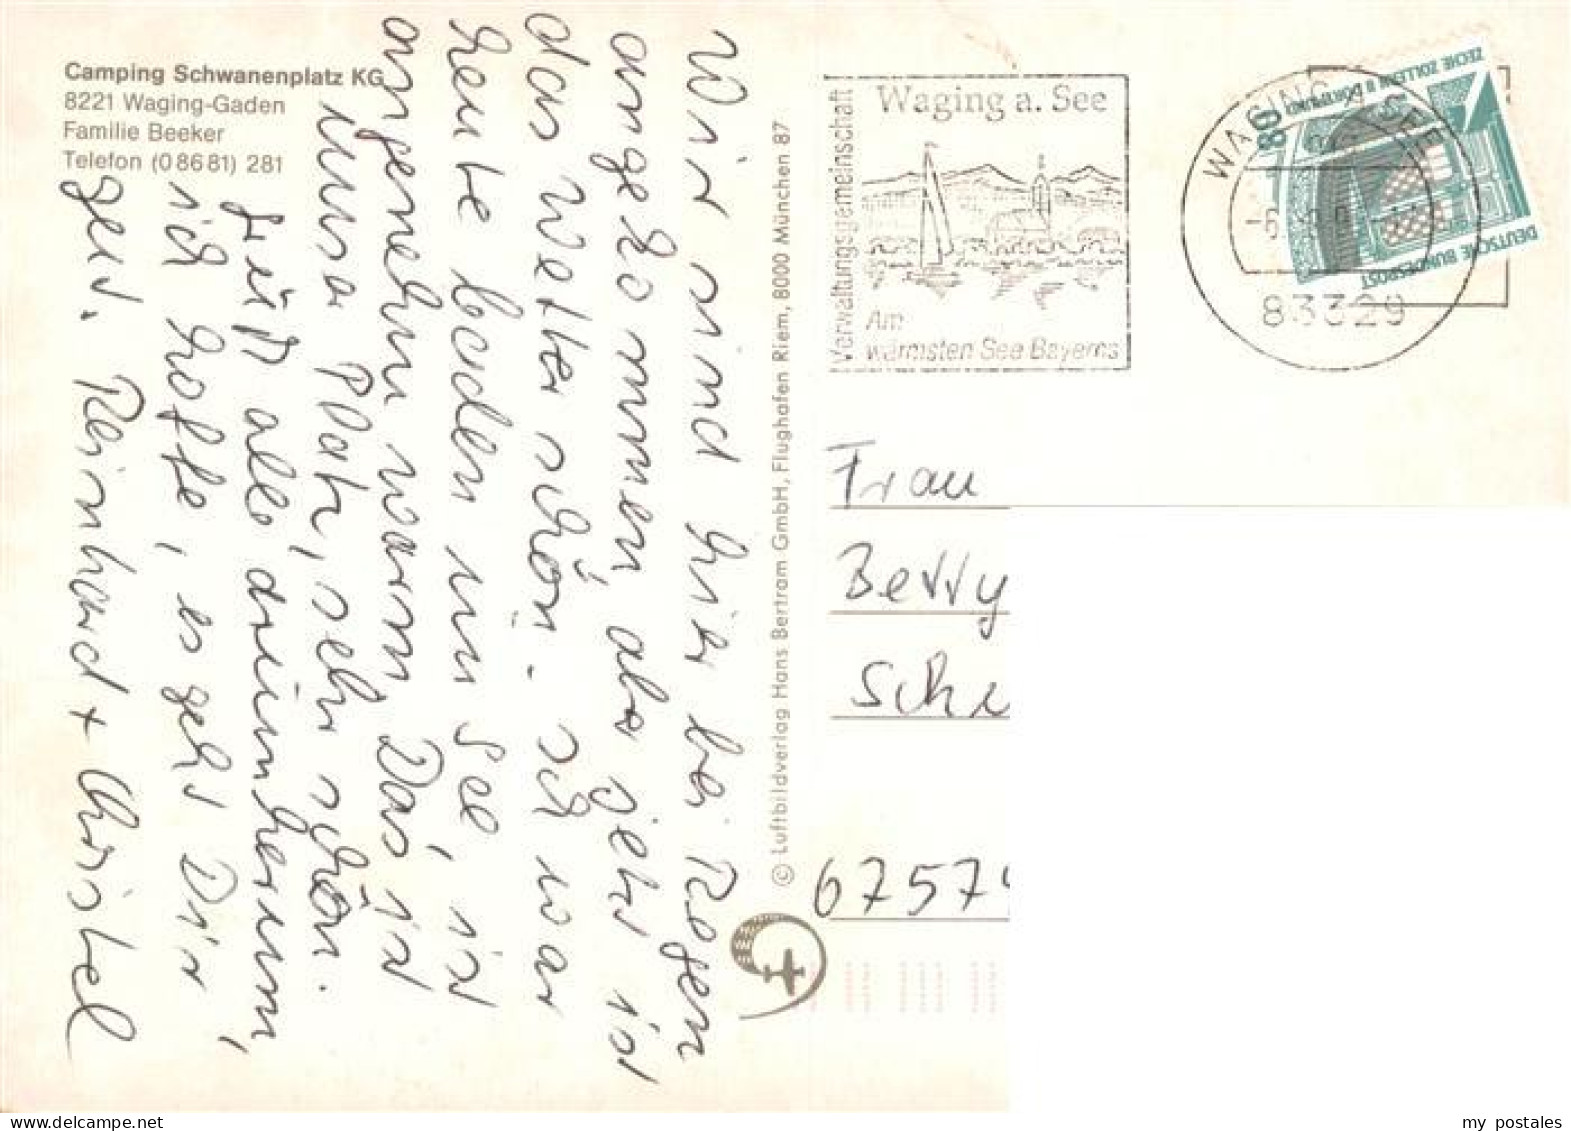 Camping Schwanenplatz KG
8221 Waging-Gaden
Familie Beeker
Telefon (08681) 281
Wir sind hier bei Regen
angekommen, aber jetzt ist
das Wetter schön. Ich war
heute baden im See, ist
angenehm warm. Das ist
unser Platz, sehr schön.
Läuft alles drumherum,
ich hoffe, es geht Dir
gut. Reinhard + Christel
© Luftbildverlag Hans Bertram GmbH, Flughafen Riem, 8000 München 87
Verwaltungsgemeinschaft
Waging a. See
Am
wärmsten See Bayerns
WAGING A SEE
83329
80
ZECHE ZOLLERN II DORTMUND
DEUTSCHE BUNDESPOST
Frau
Betty
Sche
6757
my postales